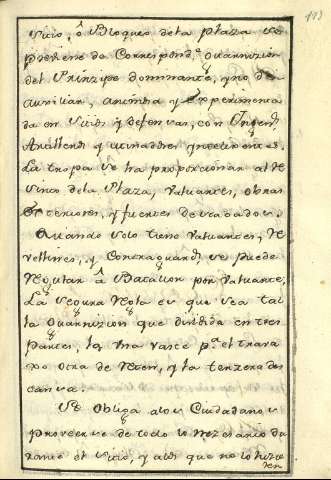 sicio, ô Bloqueo dela plaza se
previene de Correspond.ᵉ guarnizion
del Prinzipe dominante, y no de
auxiliar, anzina y experimenta
da en sicios y defensas, con Yngen.ˢ
Artilleros y minadores
La tropa se ha proporcionar al Re
cinco dela Plaza, valuartes, obras
Exteriores, y fuertes destacados.
Quando solo tiene valuartes, Re
vellines, y Contraguard.ˢ se puede
Regular â Batallon por valuarte,
La segura Regla es que sea tal
la guarnizion que dividida en tres
partes, la una vaste p.ᵃ el trava
xo otra de Reten, y la terzera des
cansa.
Se obliga alos Ciudadanos
proveerse de todo lo nezesario du
rante el sicio, y alos que no lo hizie
ren